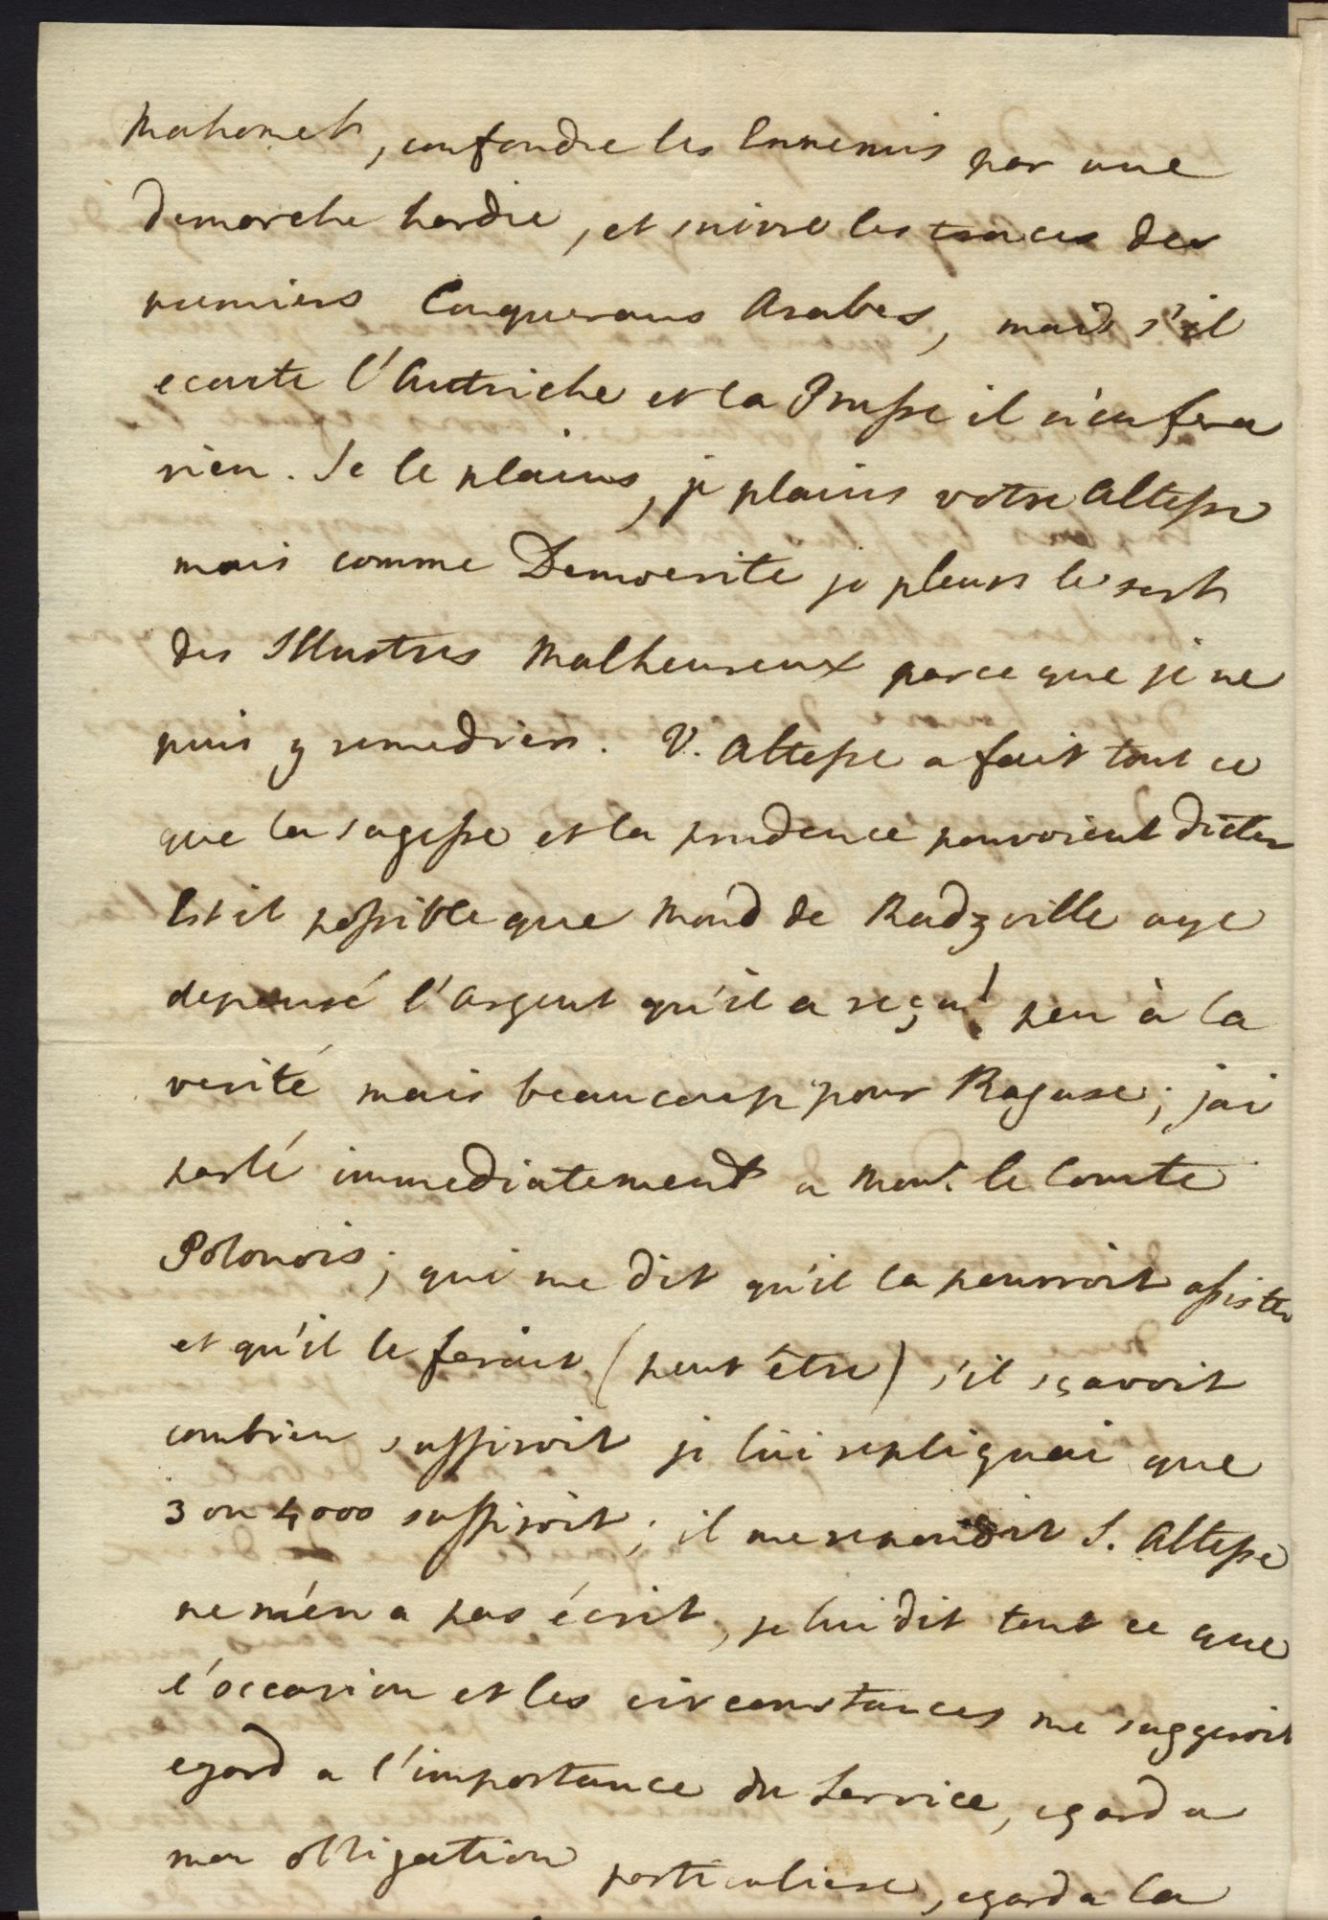 Mahomet, confondre les Ennemis par une
demarche hardie, et suivre les traces des
premiers Conquerans Arabes, mais s'il
ecoute l'Autriche et la Prusse il n'en fera
rien. Je le plains, je plains votre Altesse
mais comme Democrite je pleurs le sort
des Illustres Malheureux parce que je ne
puis y remedrier. V. Altesse a fait tout ce
que la sagesse et la prudence pouvoient dicter
Est il possible que Mons de Radzville aye
depensé l'Argent qu'il a reçu! peu à la
verité mais beaucoup pour Raguse; jai
parlé immediatement a Mons. le Comte
Polonois; qui me dit qu'il la pourroit assister
et qu'il le ferait (peut être) s'il sçavoit
combien suffiroit je lui repliquai que
3 ou 4,000 suffiroit; il me repondit S. Altesse
ne m'en a pas écrit, je lui dit tout ce que
l'occasion et les circonstances me suggeroit
egard a l'importance du Service, egard a
mon obligation particuliere, egard a la